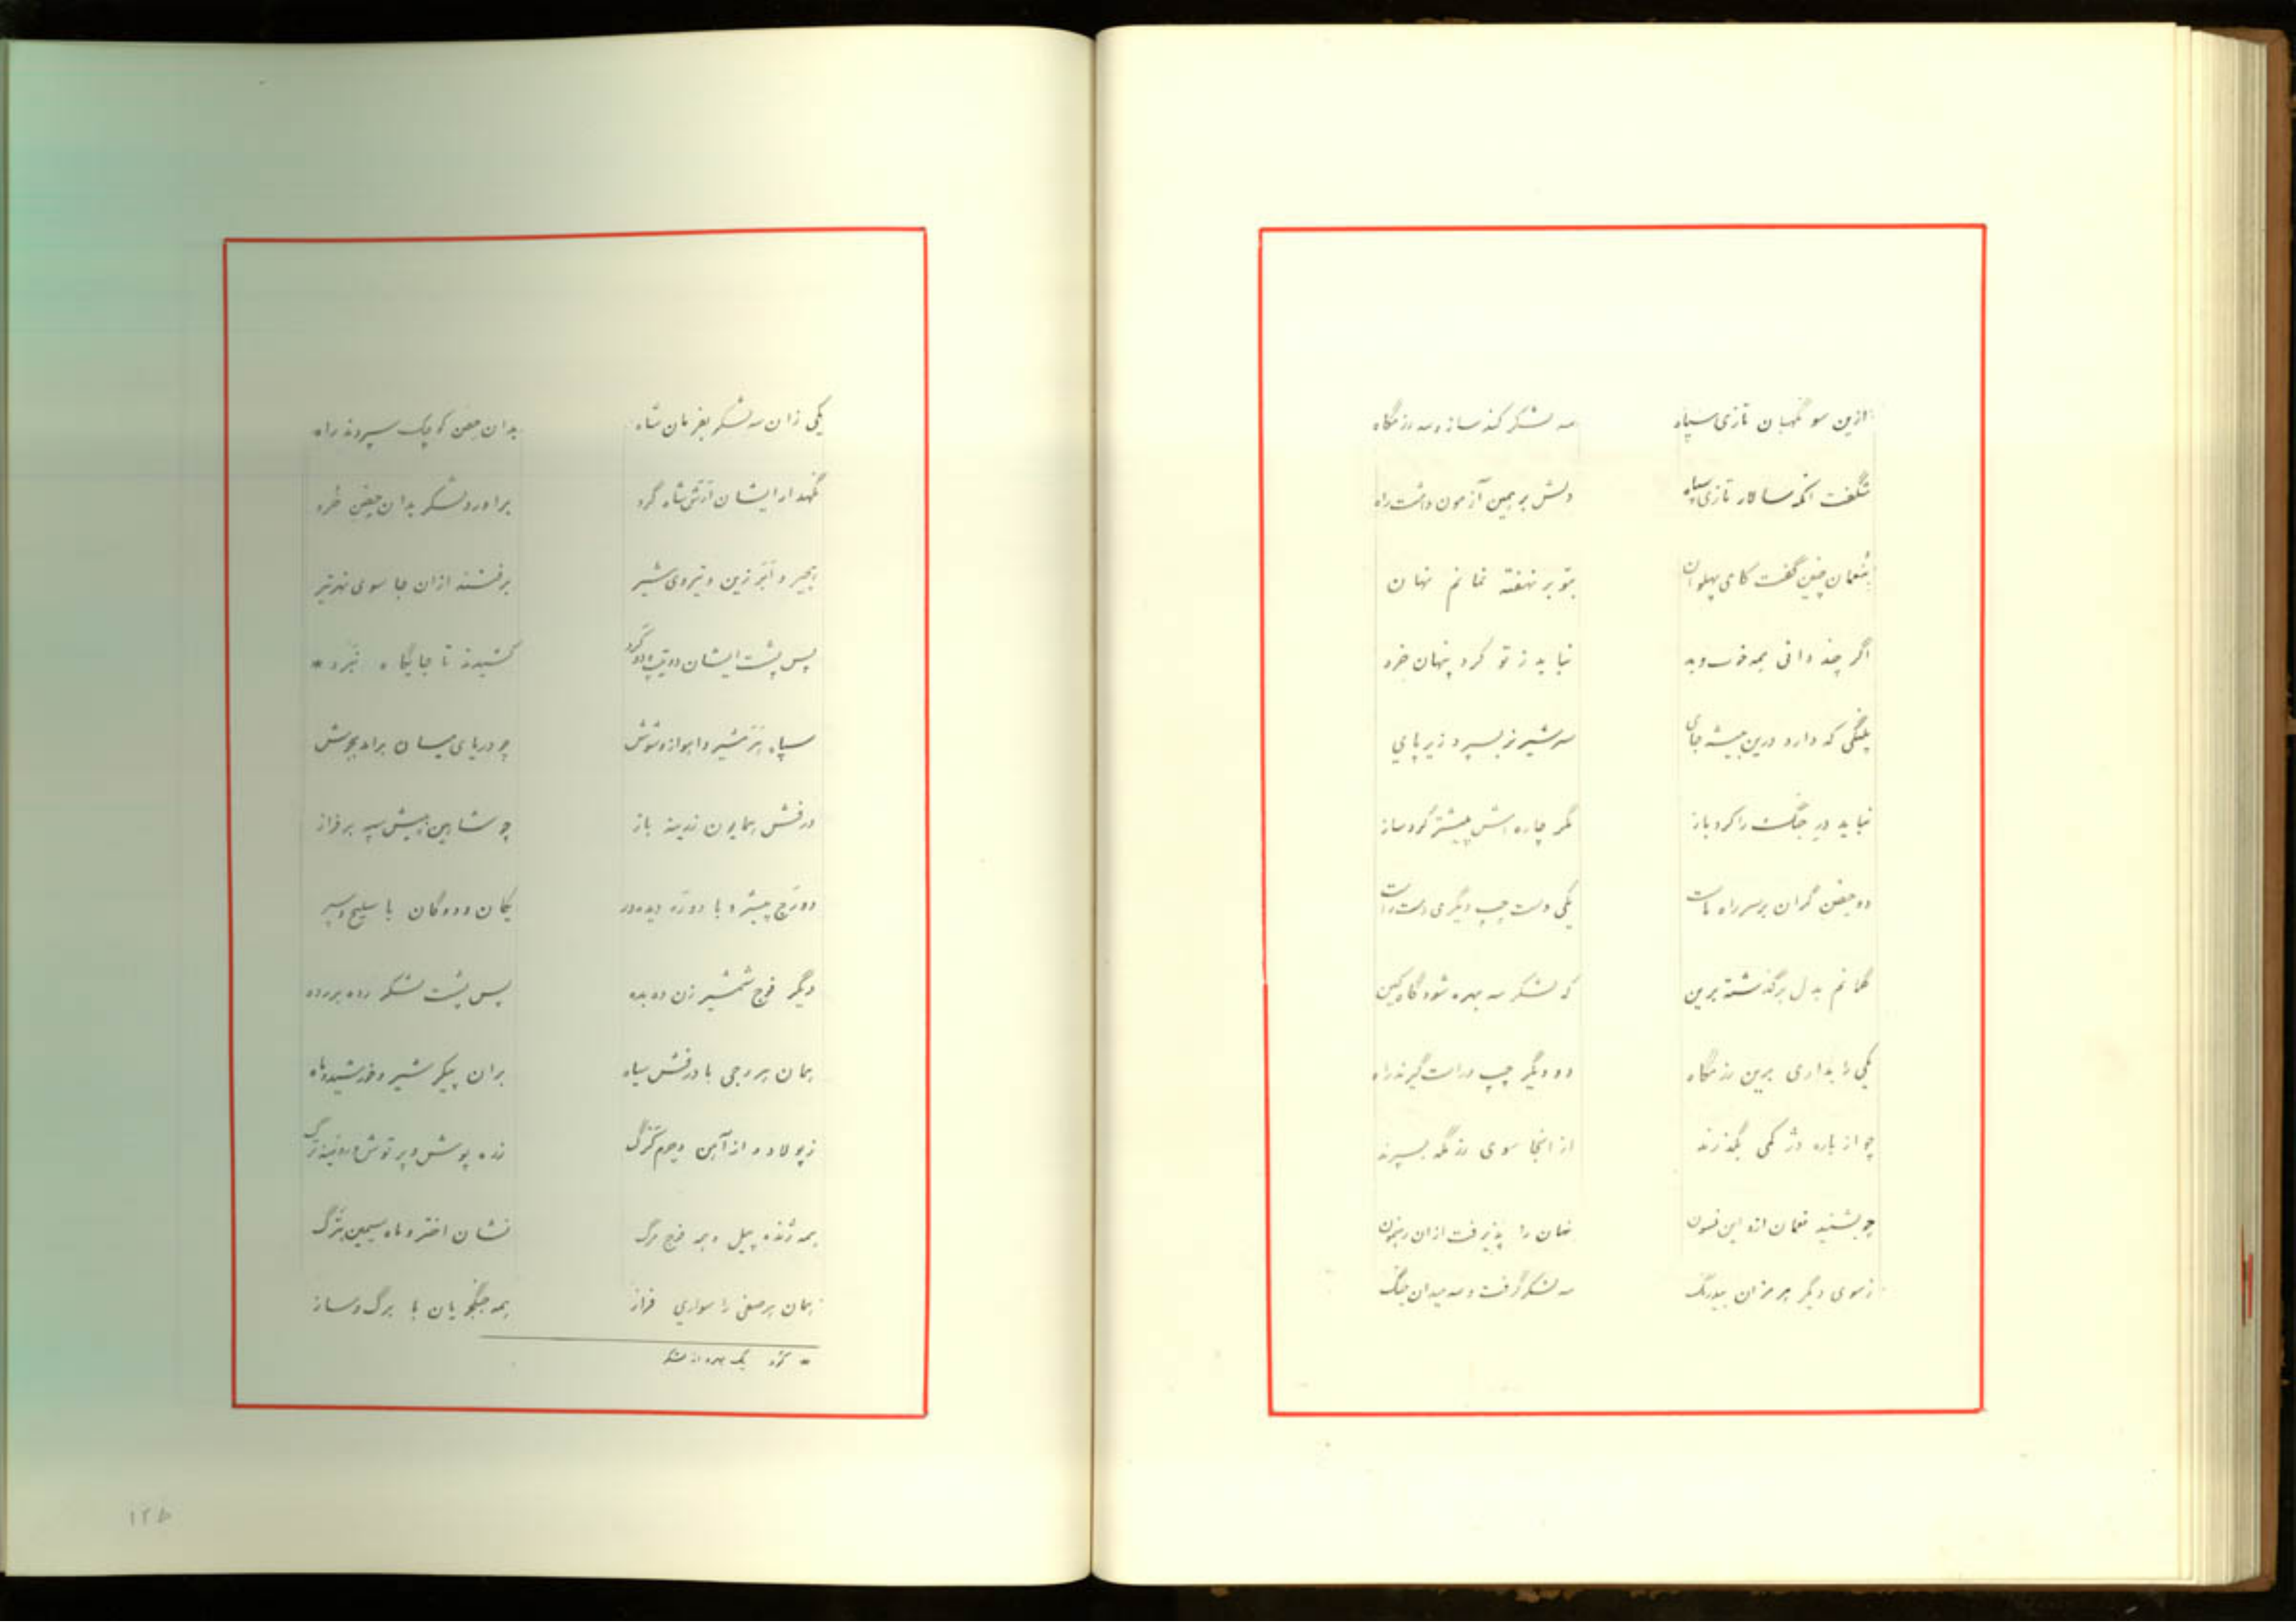 ازین سو نگهبان تازی سپاه سه لشکر کند ساز و سه رزمگاه
شگفت آنکه سالار تازی سپاه دلش بر همین آزمون داشت راه
بنعمان چنین گفت کای پهلوان بتو بر نهفته نمانم نهان
اگر چند دانی همه خوب و بد نباید ز تو کرد پنهان خرد
پلنگی که دارد درین بیشه جای سر شیر نر بسپرد زیر پای
نباید در جنگ را کرد باز مگر چاره اش پیشتر کرد ساز
دو حصن گران بر سر راه ماست یکی دست چپ دیگری دست راست
گمانم بدل برگذشته برین که لشکر سه بهره شود گاه کین
یکی را بداری برین رزمگاه دو دیگر چپ و راست گیرند راه
چو از باره دژ کمی بگذرند از انجا سوی رزمگه بسپرند
چو بشنید نعمان ازو این فسون همان را پذیرفت ازان رهنمون
ز سوی دگر هرمزان بیدرنگ سه لشکر گرفت و سه میدان جنگ
یکی زان سه لشکر بفرمان شاه بدان حصن کوچک سپردند راه
نگهدار ایشان شاه گرد براورد لشکر بدان حصن خرد
و تیروی شیر برفتند ازان جا سوی نهر تیر
پس پشت ایشان دو کرد کشیدند تا جایگاه نبرد *
سپاه و اهواز و شوش چو دریای میسان برامد بجوش
درفش همایون زرینه باز چو شاهین به پیش سپه بر فراز
با دیده‌ور یکان و دوگان با سلیح و سپر
دیگر فوج شمشیر زن ده بده پس پشت لشکر رده بر رده
همان هر با درفش سیاه بران پیکر شیر و خورشید و ماه
ز پولاد و از آهن و چرم کرگ زره پوش و بر
همه ژنده پیل و همه فوج مرگ نشان اختر و ماه سیمین
همان هر صفی را سواری فراز همه جنگجویان با برگ و ساز
* کرد یک بهره از لشکر